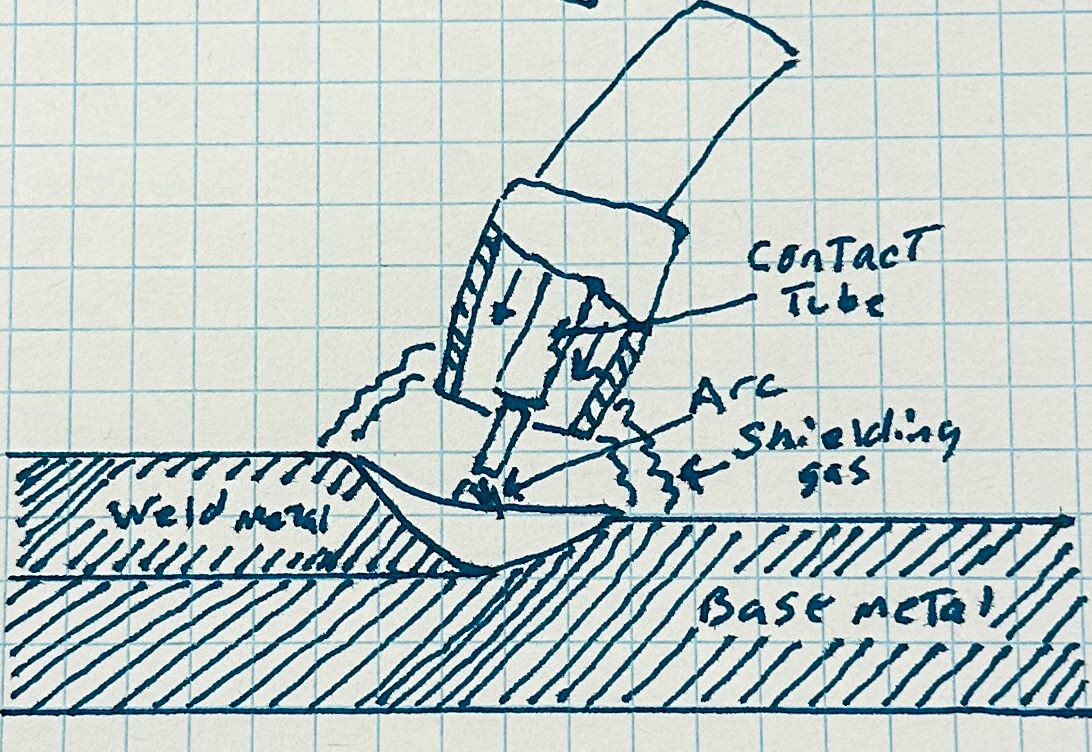 Contact
Tube
Arc
Shielding
gas
Weld metal
Base metal